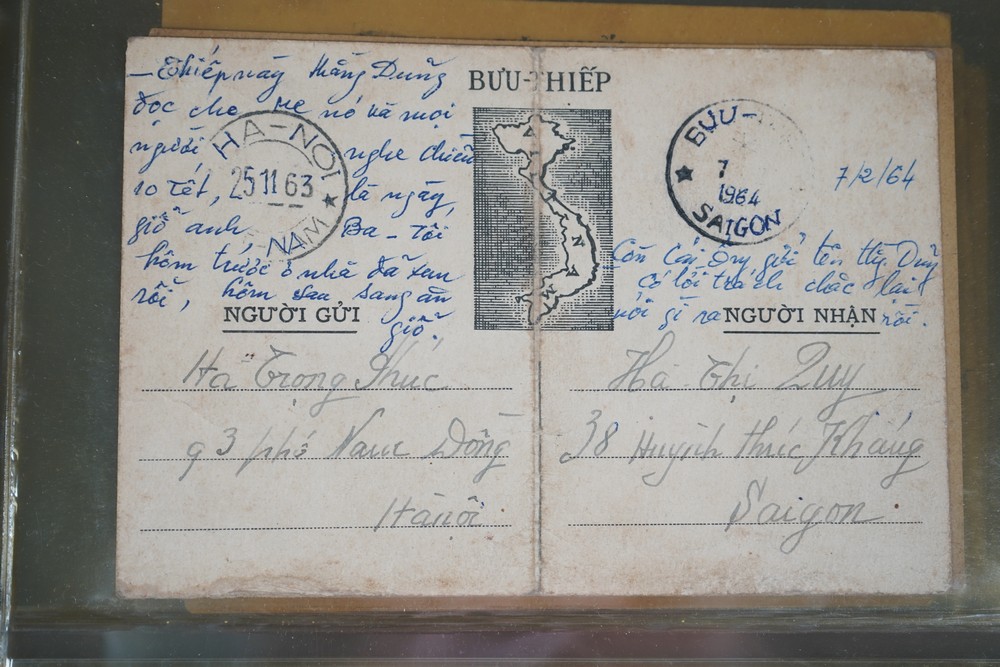 BƯU-THIẾP
— Thiếp này thằng Dũng
đọc cho Mẹ nó và mọi
người nghe chiều
10 Tết, là ngày
giỗ anh Ba - Tôi
hôm trước ở nhà đã xem
rồi, hôm sau sang ăn
giỗ.
HA-NOI
25 11 63
NAM
BƯU-
7
1964
SAIGON
7/2/64
Còn cái ông gửi tên thg. Dũg
có lỗi trách chắc lại
nói gì ra rồi.
NGƯỜI GỬI
Hà Trọng Phúc
93 phố Nam Đồng
Hànôi
NGƯỜI NHẬN
Hà Thị Quy
38 Huỳnh Thúc Kháng
Saigon